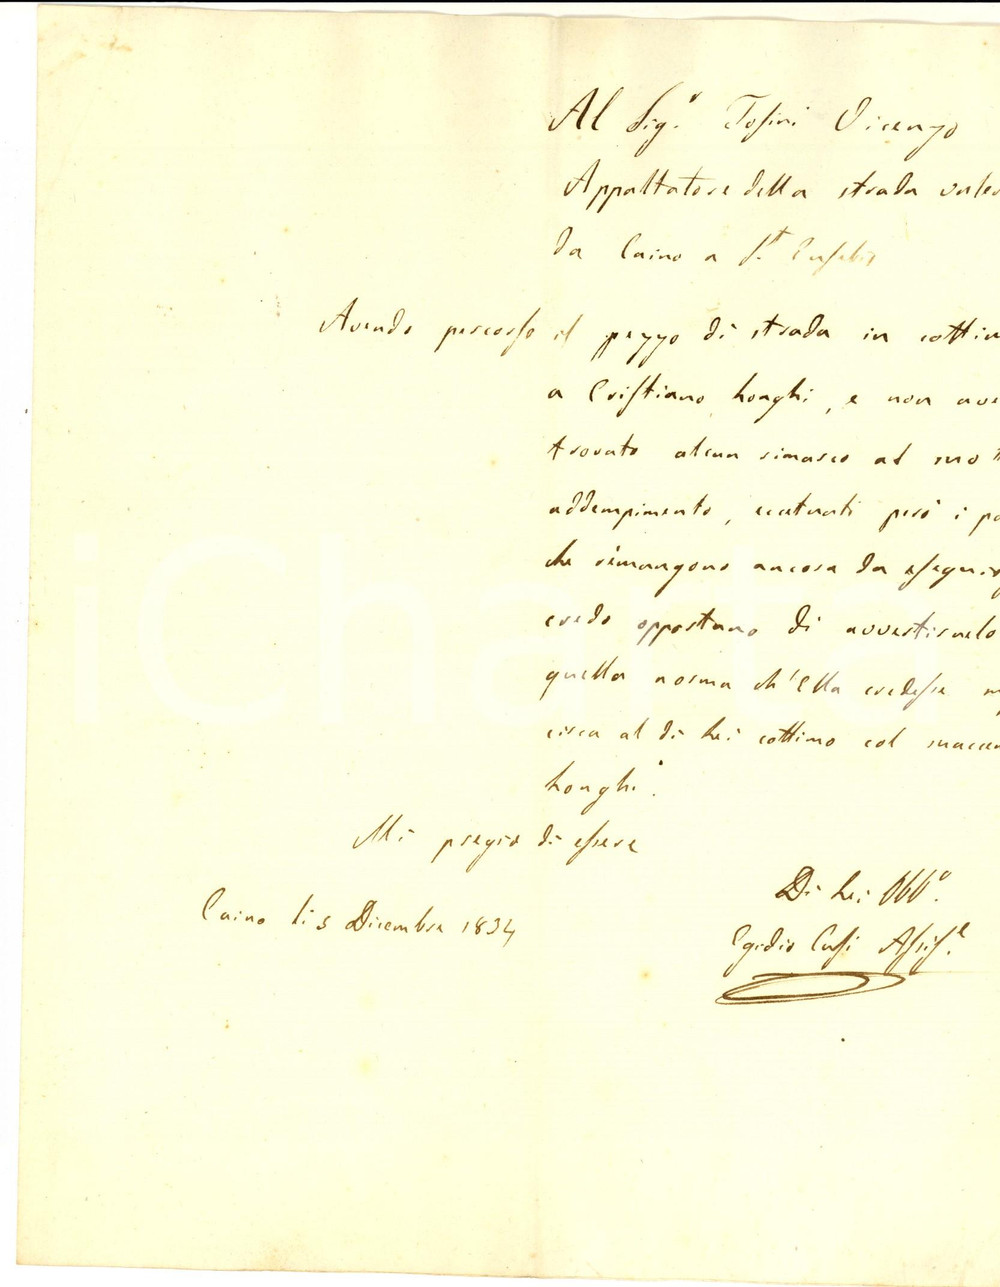 Al Sig.r Tosini Vicenzo
Appaltatore della strada
da Caino a S.t Eusebio
Avendo percorso il pezzo di strada in
a Cristiano Longhi, e non
trovato alcun rimarco al
addempimento, eccetuati però i
che rimangono ancora da
credo oppostano di avvertirnelo
quella norma ch'Ella credesse
circa al di Lei cottimo col
Longhi.
Mi pregio di essere
Di Lei Obb.o
Caino li 5 Dicembre 1834
Egidio Assis.e
iCharta